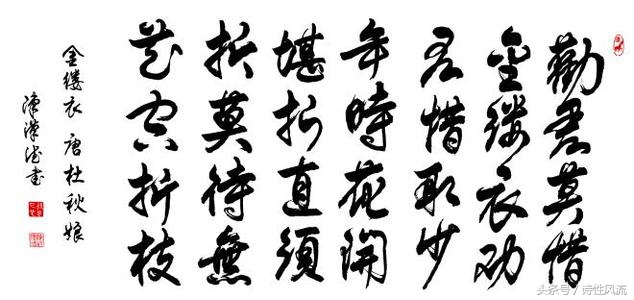 勸君莫惜
金缕衣劝
君惜取少
年時花開
堪折直須
折莫待無
花空折枝
金缕衣 唐杜秋娘
书
头条号/诗性风流